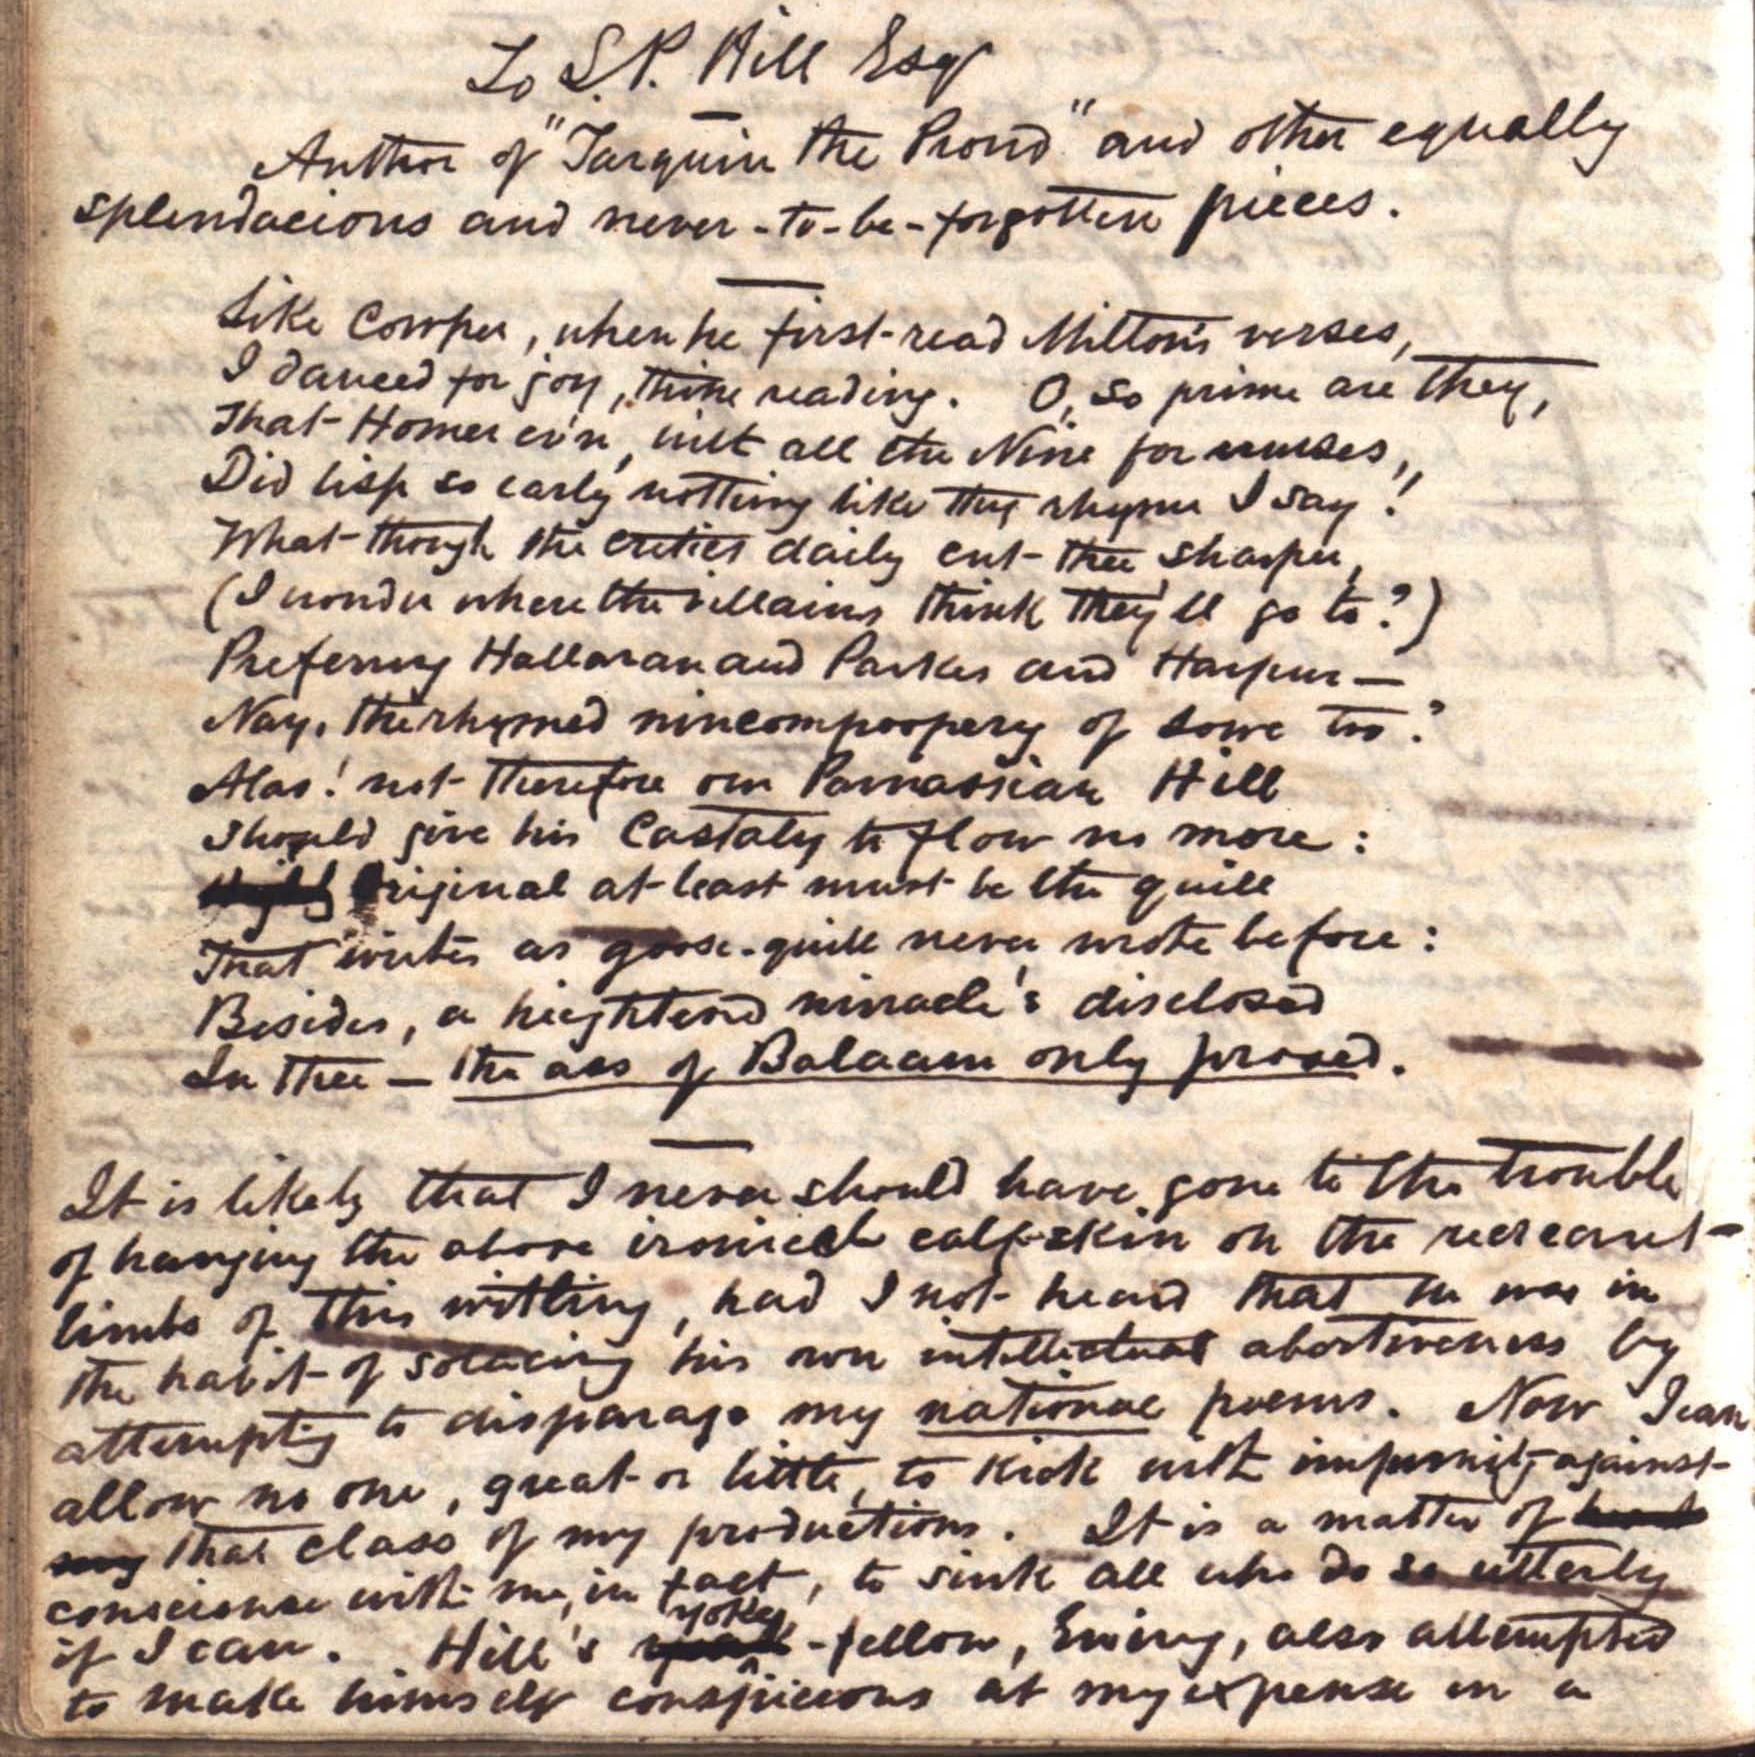 To S.P. Hill Esqr
Author of "Tarquin the Proud" and other equally
splendacious and never-to-be-forgotten pieces.
Like Cowper, when he first read Milton's verses,
I danced for joy, thine reading. O, so prime are they,
That Homer ev'n, with all the Nine for nurses,
Did lisp so early nothing like thy rhyme I say!
What though the critics daily cut thee sharper,
(I wonder where the villains think they'll go to?)
Preferring Halloran and Parkes and Harpur—
Nay, the rhymed nincompoopery of Lowe too?
Alas! not therefore our Parnassian Hill
Should give his Castaly to flow no more:
Original at least must be the quill
That writes as goose-quill never wrote before:
Besides, a heightened miracle's disclosed
In thee — the ass of Balaam only prosed.
It is likely that I never should have gone to the trouble
of hanging the above ironical calf-skin on the recreant
limbs of this witling, had I not heard that he was in
the habit of solacing his own intellectual abortiveness by
attempting to disparage my national poems. Now I can
allow no one, great or little, to kick with impunity against
my that class of my productions. It is a matter of
conscience with me, in fact, to sink all who do so utterly
if I can. Hill's yoke-fellow, Ewing, also attempted
to make himself conspicuous at my expense in a